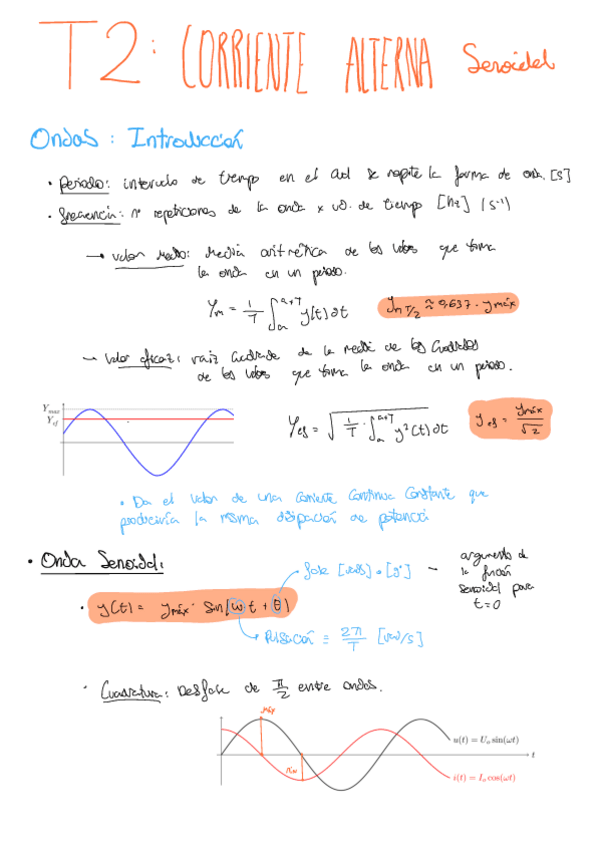 T2: CORRIENTE ALTERNA Senoidal
Ondas: Introducción
• Periodo: intervalo de tiempo en el cual se repite la forma de onda. [s]
• Frecuencia: nº repeticiones de la onda x ud. de tiempo [hz] (s⁻¹)
→ Valor Medio: Media aritmética de los valores que toma
la onda en un periodo.
Yₘ = 1/T ∫ₐᵃ⁺ᵀ y(t) dt   Yₘ T/2 ≈ 0,637 · ymáx
→ Valor eficaz: raiz cuadrada de la media de los cuadrados
de los valores que toma la onda en un periodo.
Ymax
Yef
Yef = √(1/T · ∫ₐᵃ⁺ᵀ y²(t) dt)   Yef = ymáx/√2
• Da el valor de una corriente continua constante que
produciría la misma disipación de potencia
• Onda Senoidal:
fase [rads] o [gº] — argumento de
la función
senoidal para
t=0
• y(t) = ymáx · sin(ωt + θ)
Pulsación ≡ 2π/T [rad/s]
• Cuadratura: Desfase de π/2 entre ondas.
MÁX
MIN
u(t) = Uₒ sin(ωt)
t
i(t) = Iₒ cos(ωt)